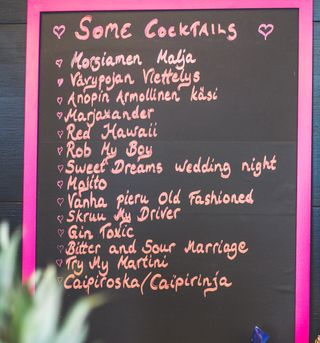 Some Cocktails
Morsiamen Malja
Vävypojan Viettelys
Anopin Armollinen käsi
Marjaxander
Red Hawaii
Rob My Boy
Sweet Dreams wedding night
Mojito
Vanha pieru Old Fashioned
Skruu My Driver
Gin Toxic
Bitter and Sour Marriage
Try My Martini
Caipiroska/Caipirinja